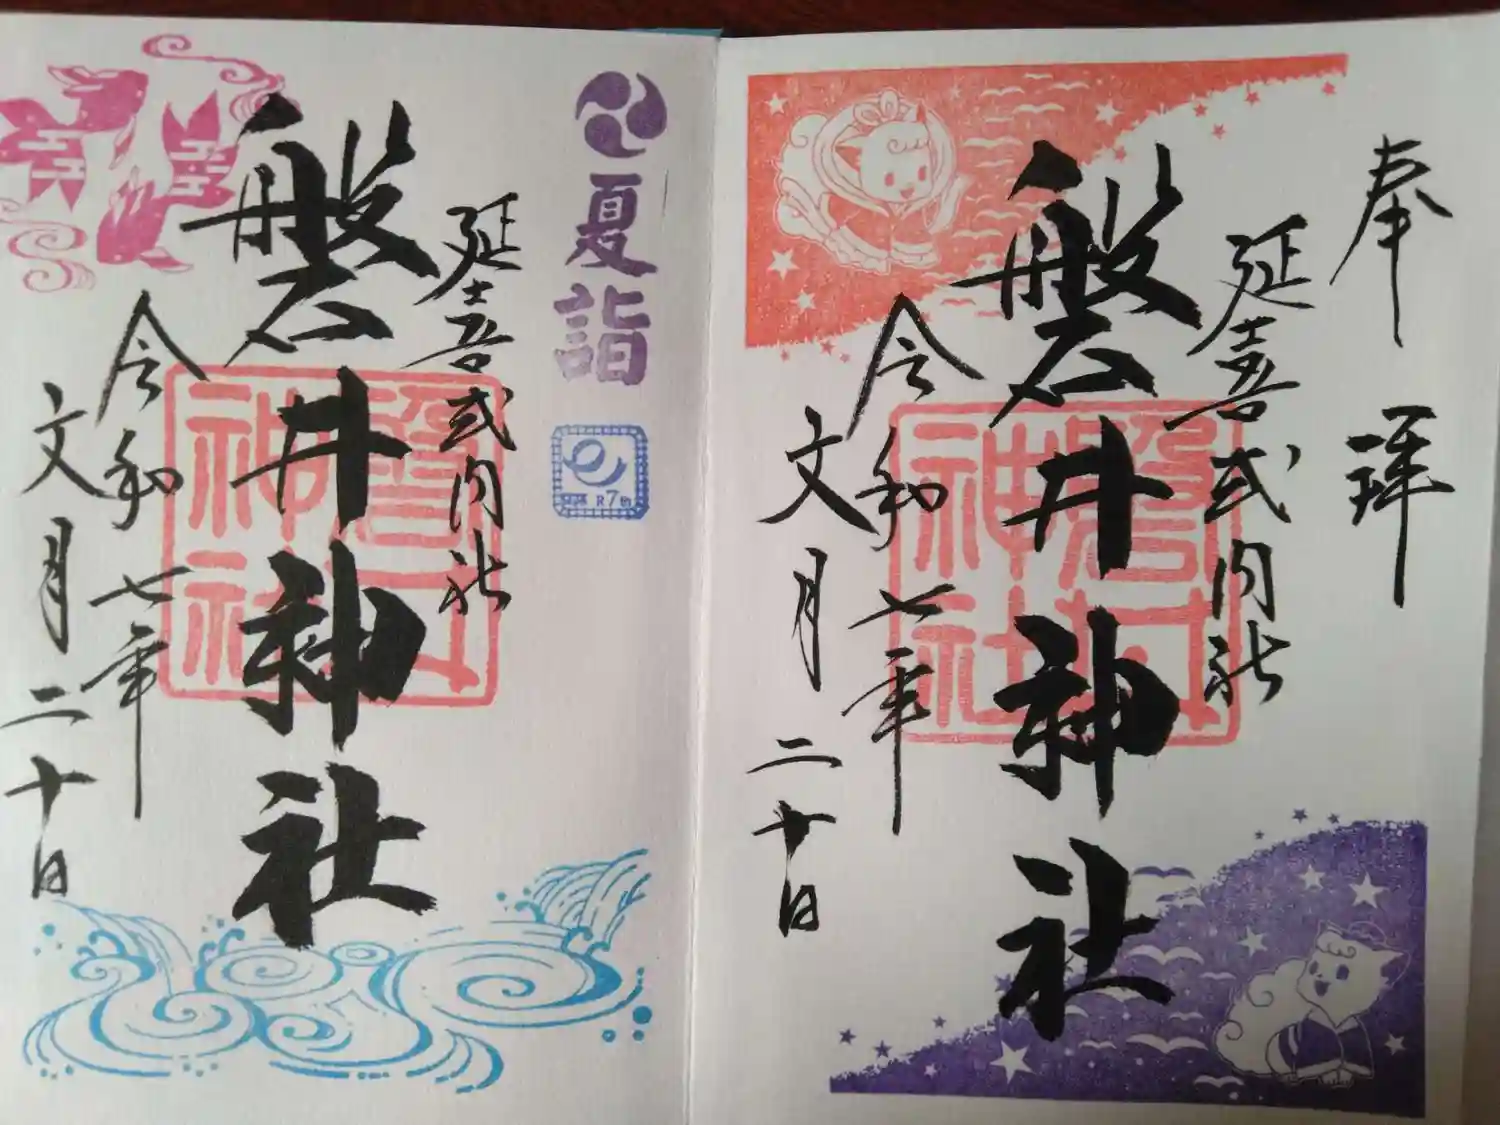 奉拝
延喜式内社
磐井神社
令和七年
文月二十日
磐井神社
夏詣
R7
延喜式内社
磐井神社
令和七年
文月二十日
磐井神社